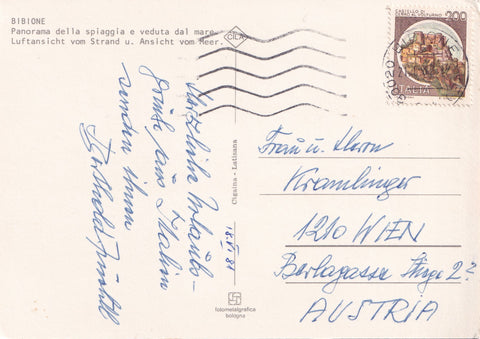 BIBIONE
Panorama della spiaggia e veduta dal mare.
Luftansicht vom Strand u. Ansicht vom Meer.
CILA
200
ITALIA
Herzliche Urlaubs-
grüße aus Italien
senden Ihnen
12. VI. 81
Cigaina - Latisana
fotometalgrafica
bologna
Frau u. Herrn
Kramlinger
1210 WIEN
Berlagasse
AUSTRIA